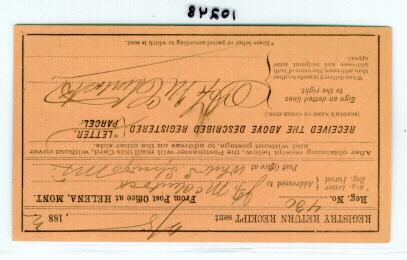 REGISTRY RETURN RECEIPT sent
188
Reg. No. 430 From Post Office at HELENA, MONT.
Reg. Letter
Reg. Parcel
Addressed to
Post Office at White Springs
After obtaining receipt below, the Postmaster will mail this Card, without cover
and without postage, to address on the other side.
RECEIVED THE ABOVE DESCRIBED REGISTERED
*LETTER.
PARCEL.
Sign on dotted lines
to the right.
When delivery is made to other
than addressee, the name of both
addressee and recipient must
appear.
*Erase letter or parcel according to which is sent.
10548